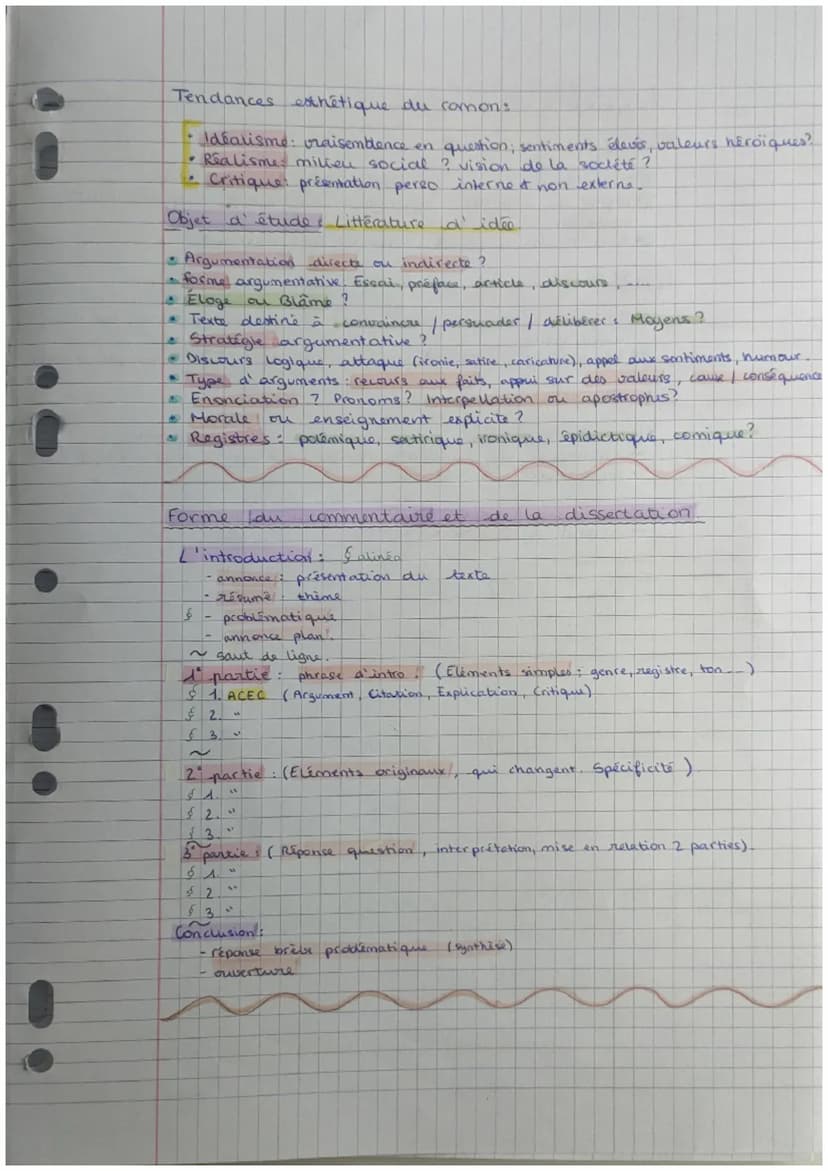 Tendances esthétique du roman:
• Idéalisme: vraisemblence en question, sentiments élevés, valeurs héroïques?
• Réalisme: milieu social ? vision de la société ?
• Critique: présentation perso interne et non externe.
Objet d'étude: Littérature d'idée
• Argumentation directe ou indirecte ?
• forme argumentative. Essai, préface, article, discours, ....
• Éloge ou Blâme ?
• Texte destiné à convaincre / persuader / délibérer : Moyens ?
• Stratégie argumentative ?
• Discours logique, attaque (ironie, satire, caricature), appel aux sentiments, humour.
• Type d'arguments : recours aux faits, appui sur des valeurs, cause / conséquence
• Enonciation ? Pronoms ? Interpellation ou apostrophus?
• Morale ou enseignement explicite ?
• Registres : polémique, satirique, ironique, épidictique, comique?
Forme du commentaire et de la dissertation
L'introduction : § alinéa
- annonce : présentation du texte
- résumé, thème
§ - problématique
- annonce plan.
~ saut de ligne.
1° partie : phrase d'intro : (Eléments simples : genre, registre, ton...)
§ 1. ACEC (Argument, Citation, Explication, Critique)
§ 2. "
§ 3. "
~
2° partie : (Eléments originaux, qui changent. Spécificité)
§ 1. "
§ 2. "
§ 3. "
~
3° partie : (Réponse question, interprétation, mise en relation 2 parties).
§ 1 "
§ 2 "
§ 3 "
~
Conclusion :
- réponse brève problématique (synthèse)
- ouverture